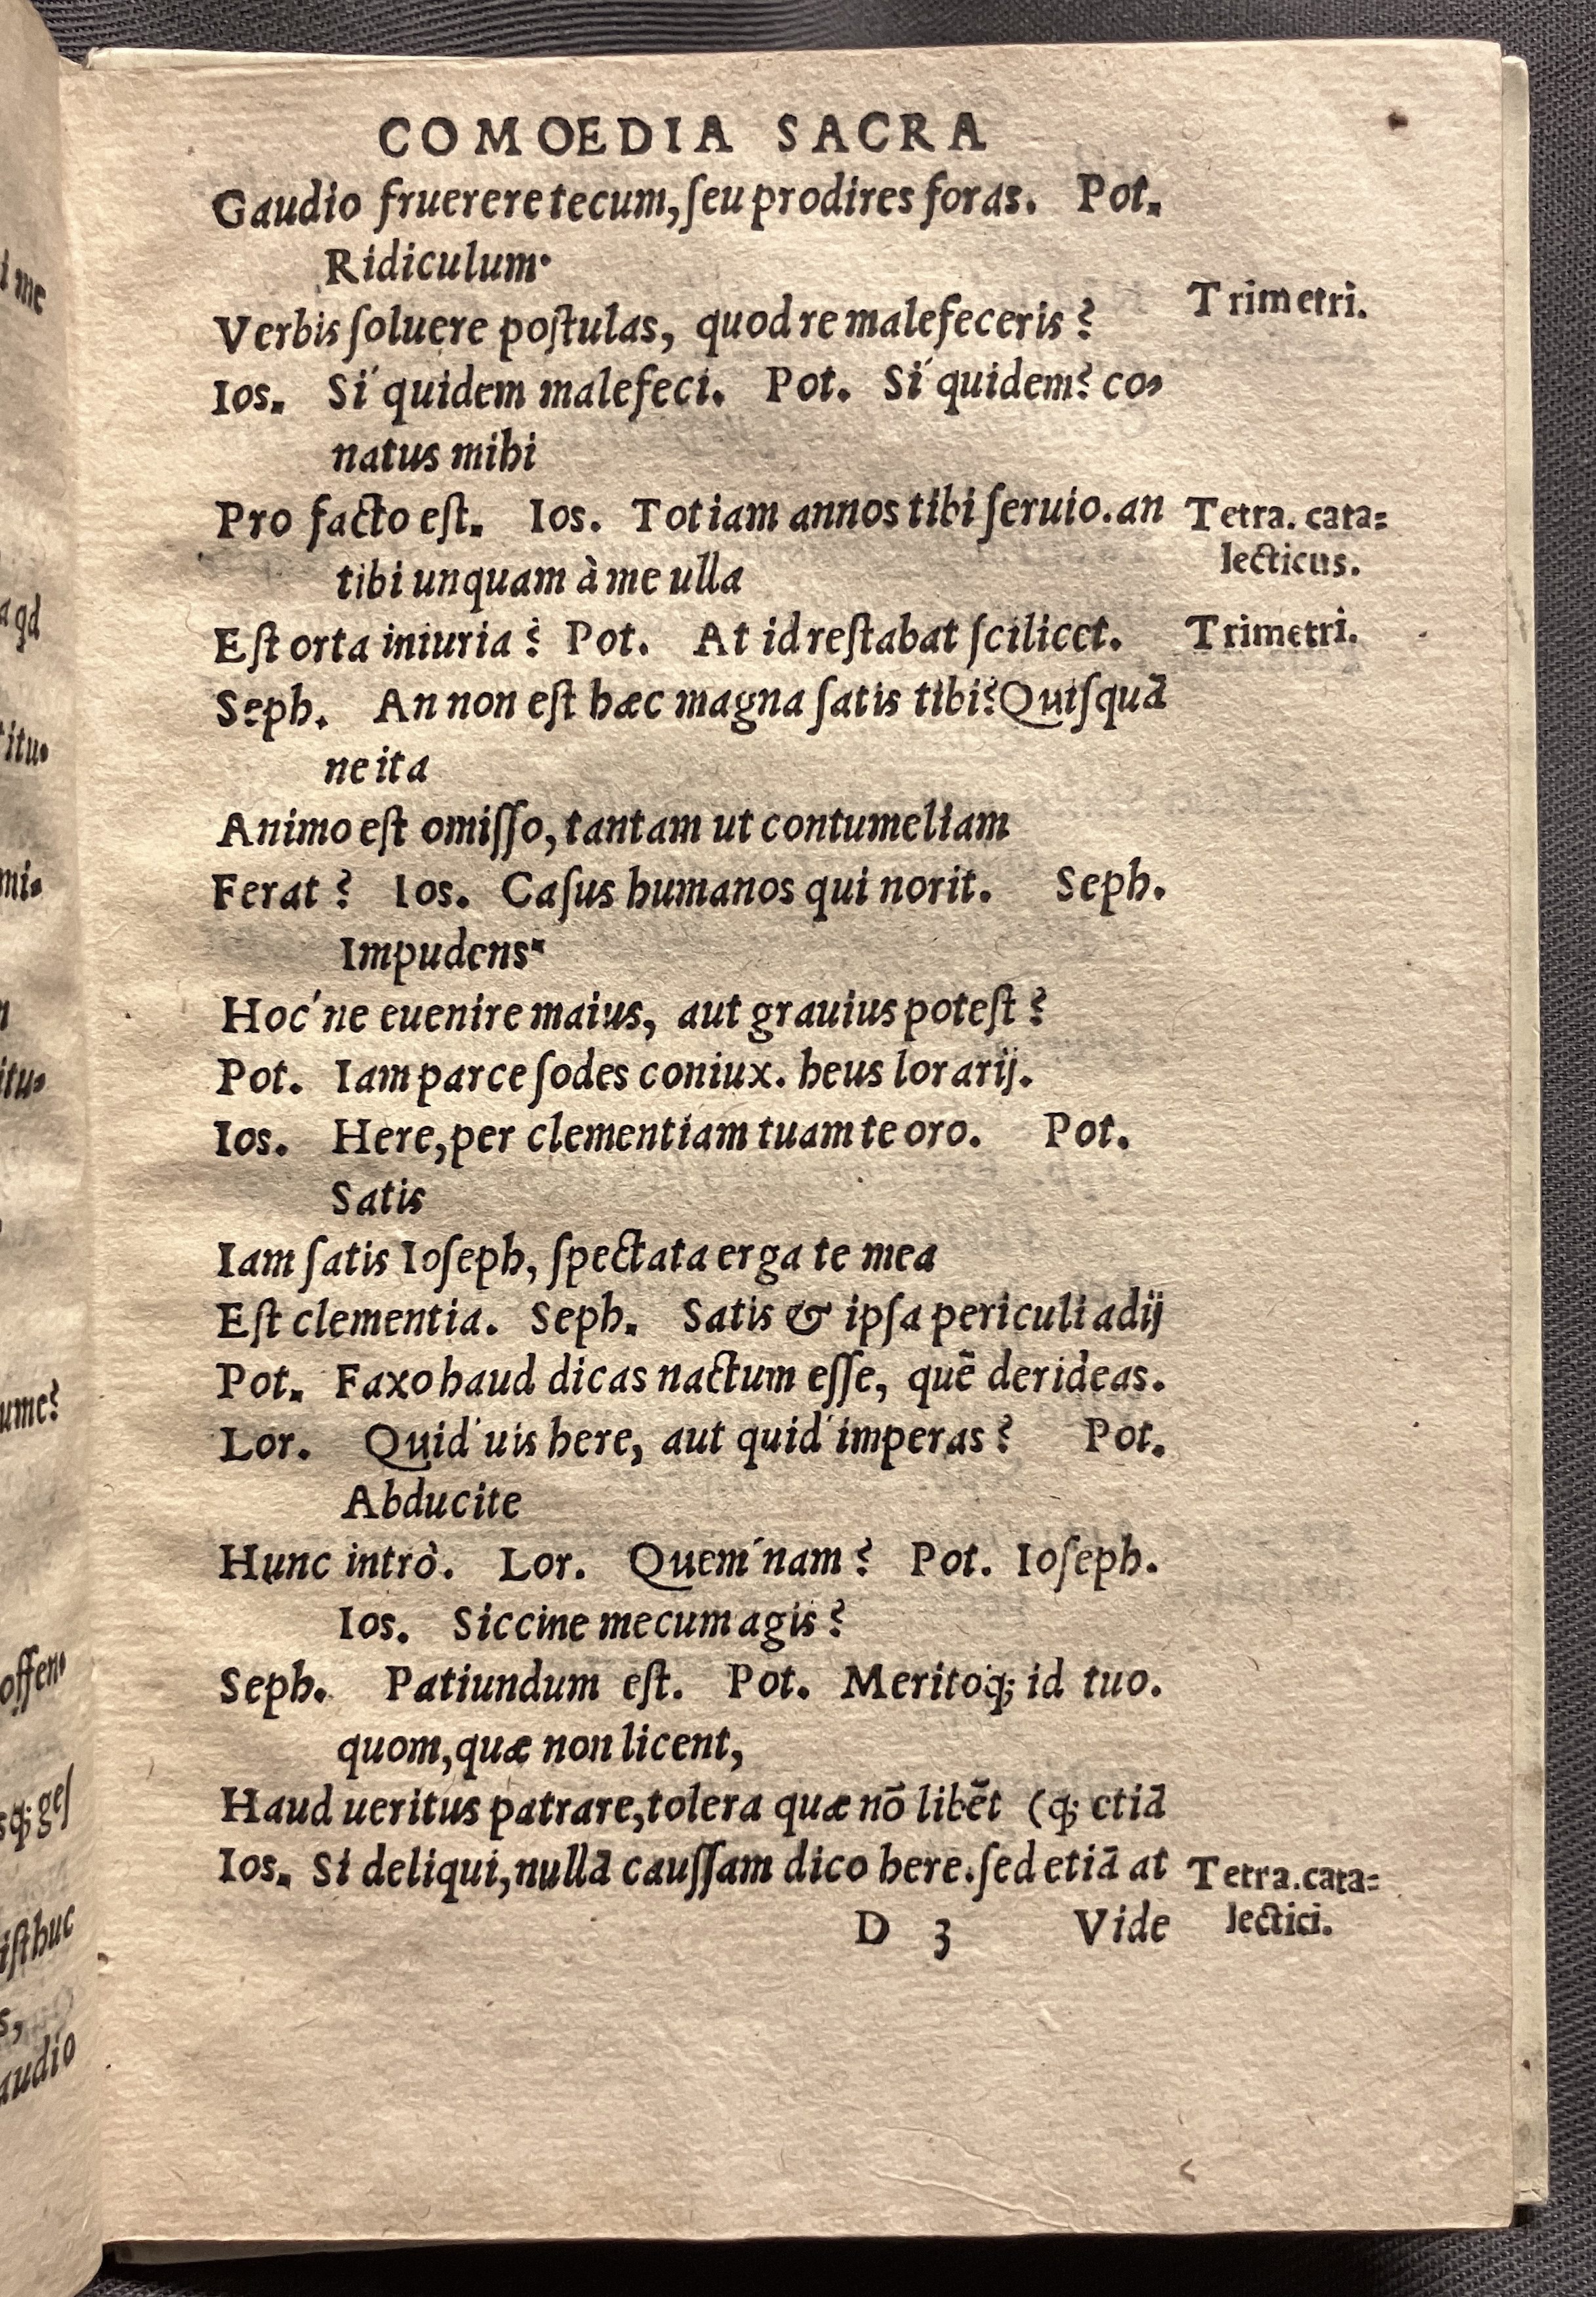 COMOEDIA SACRA
Gaudio fruerere tecum, ſeu prodires foras. Pot.
Ridiculum.
Trimetri.
Verbis ſoluere poſtulas, quod re malefeceris?
Ios. Si'quidem malefeci. Pot. Si'quidem? co-
natus mihi
Pro facto eſt. Ios. Tot iam annos tibi ſeruio. an
Tetra. cata=
lecticus.
tibi unquam à me ulla
Eſt orta iniuria? Pot. At id reſtabat ſcilicet.
Trimetri.
Seph. An non eſt hæc magna ſatis tibi? Quiſquã
ne ita
Animo eſt omiſſo, tantam ut contumeliam
Ferat? Ios. Caſus humanos qui norit. Seph.
Impudens.
Hoc'ne euenire maius, aut grauius poteſt?
Pot. Iam parce ſodes coniux. heus lorarij.
Ios. Here, per clementiam tuam te oro. Pot.
Satis
Iam ſatis Ioſeph, ſpectata erga te mea
Eſt clementia. Seph. Satis & ipſa periculi adij
Pot. Faxo haud dicas nactum eſſe, quẽ derideas.
Lor. Quid'uis here, aut quid'imperas? Pot.
Abducite
Hunc intrò. Lor. Quem'nam? Pot. Ioſeph.
Ios. Siccine mecum agis?
Seph. Patiundum eſt. Pot. Meritoq; id tuo.
quom, quæ non licent,
Haud ueritus patrare, tolera quæ nõ libẽt (q; etiã
Ios. Si deliqui, nullã cauſſam dico here. ſed etiã at
Tetra. cata=
lectici.
D 3 Vide
i me
a qd
titu-
mi-
itu-
ume?
offen-
sq; geſ
iſthuc
s,
audio